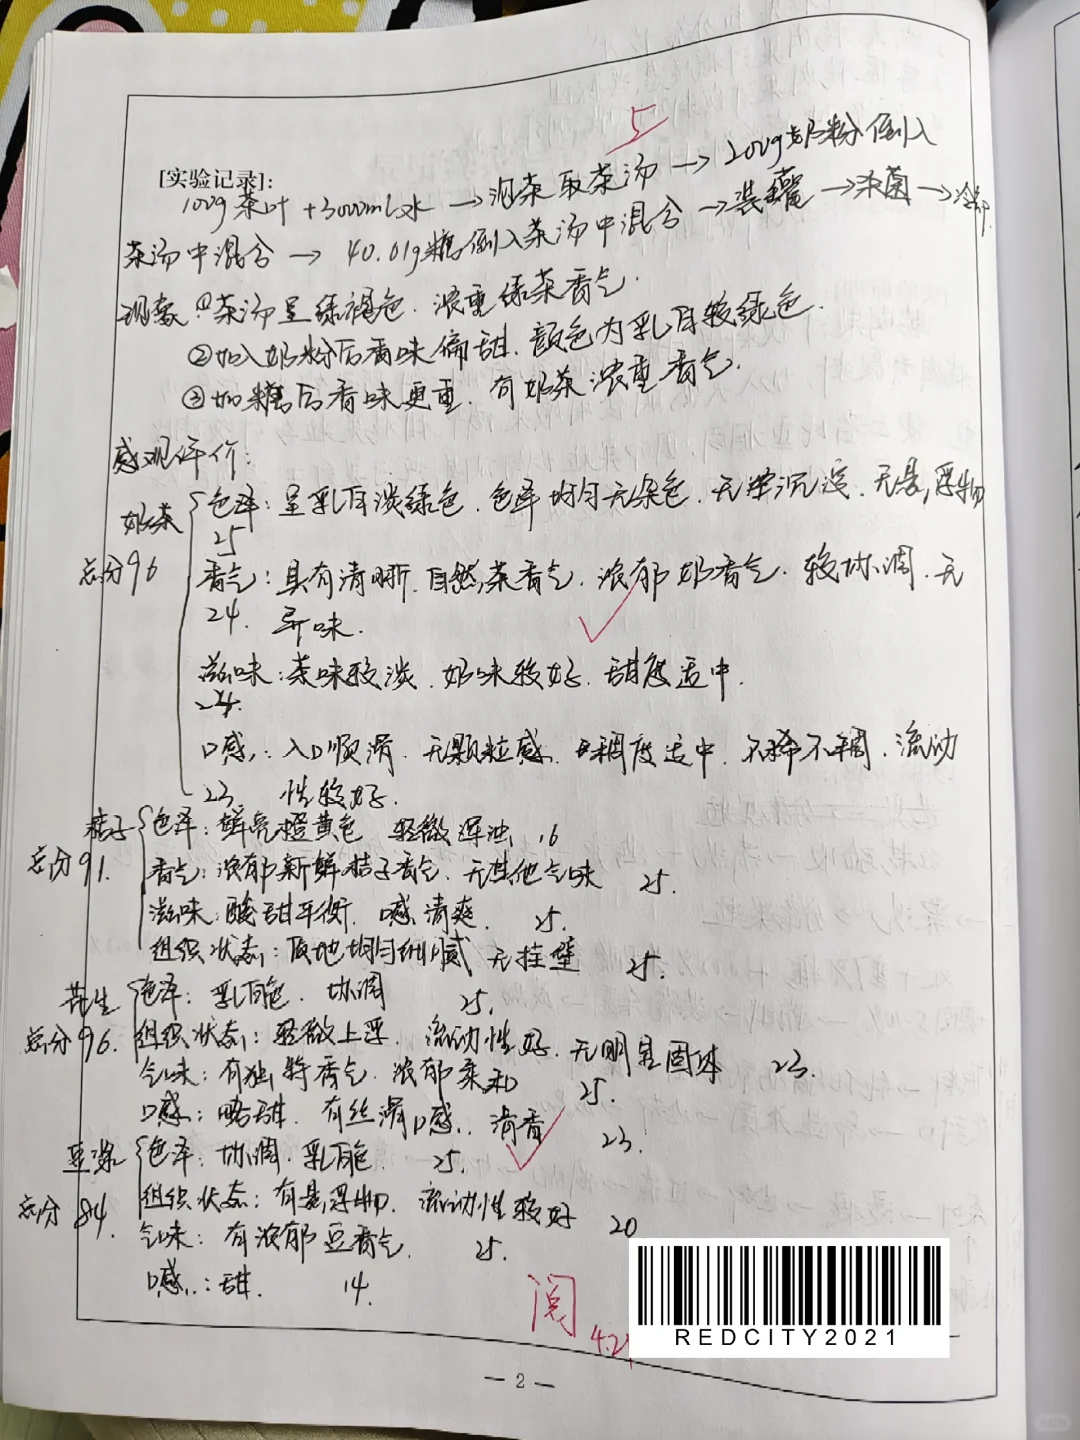 5
[实验记录]:
100g茶叶+3000mL水→泡茶取茶汤→200g奶粉倒入
茶汤中混合→40.01g糖倒入茶汤中混合→装罐→杀菌→冷却.
现象①茶汤呈绿褐色.浓重绿茶香气.
②加入奶粉后香味偏甜.颜色为乳白较绿色.
③加糖后香味更重.有奶茶浓重香气.
感观评价:
奶茶 色泽:呈乳白淡绿色.色泽均匀无杂色.无沉淀.无悬浮物
25
总分96 香气:具有清晰.自然茶香气.浓郁奶香气.较协调.无
24. 异味.
滋味:茶味较淡.奶味较好.甜度适中.
24.
口感:入口顺滑.无颗粒感.稠度适中.不稀不稠.流动
23 性较好.
桔子 色泽:鲜亮橙黄色 轻微浑浊 16
总分91. 香气:浓郁新鲜桔子香气.无其他气味 25.
滋味:酸甜平衡.口感清爽. 25.
组织状态:质地均匀细腻 无挂壁 25.
花生 色泽:乳白色.协调 25.
总分96. 组织状态:轻微上浮.流动性好.无明显固体 23.
气味:有独特香气.浓郁柔和 25.
口感:略甜.有丝滑口感.清香 23.
豆浆 色泽:协调.乳白色. 25.
总分84. 组织状态:有悬浮物.流动性较好 20
气味:有浓郁豆香气. 25.
口感:甜. 14.
阅
4.2
REDCITY2021
— 2 —